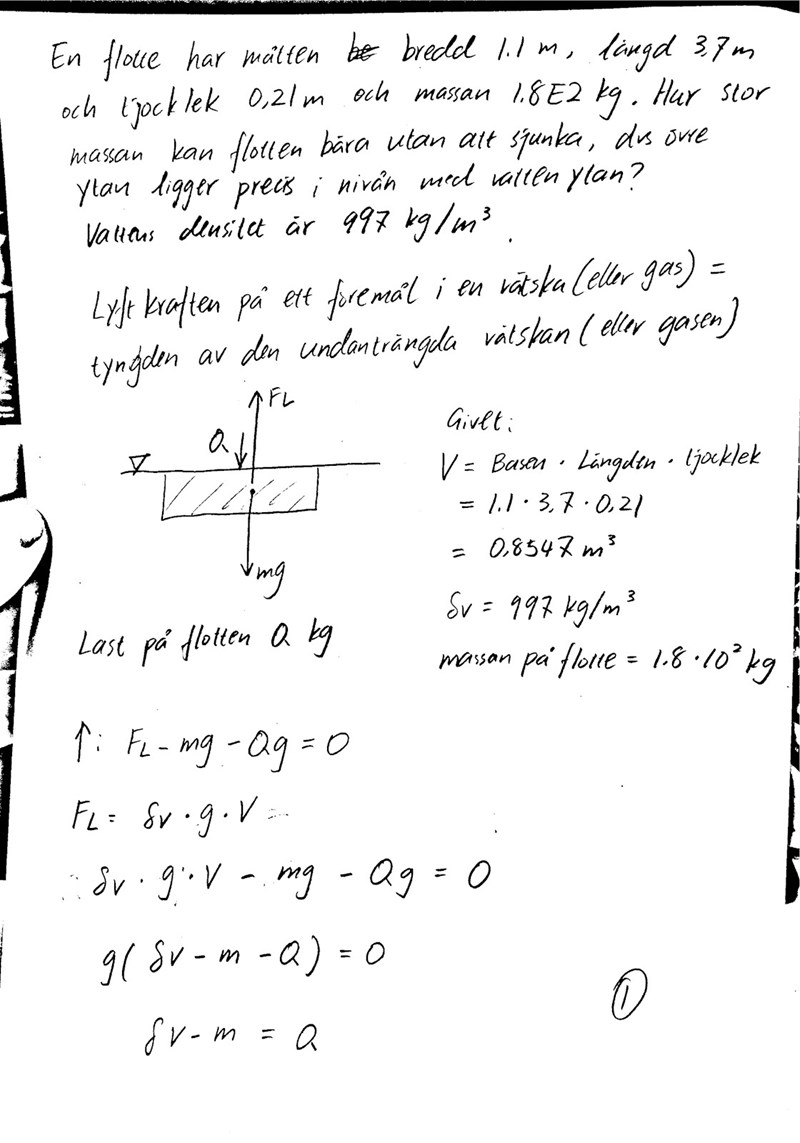 En flotte har måtten be bredd 1.1 m, längd 3,7 m
och tjocklek 0,21 m och massan 1.8E2 kg. Hur stor
massan kan flotten bära utan att sjunka, dvs övre
ytan ligger precis i nivån med vattenytan?
Vattens densitet är 997 kg/m³.
Lyftkraften på ett föremål i en vätska (eller gas) =
tyngden av den undanträngda vätskan (eller gasen)
FL
Q
mg
Last på flotten Q kg
Givet:
V = Basen · Längden · tjocklek
= 1.1 · 3,7 · 0,21
= 0,8547 m³
δv = 997 kg/m³
massan på flotte = 1.8 · 10² kg
↑: FL - mg - Qg = 0
FL = δv · g · V =
∴ δv · g · V - mg - Qg = 0
g( δV - m - Q) = 0
δV - m = Q
①